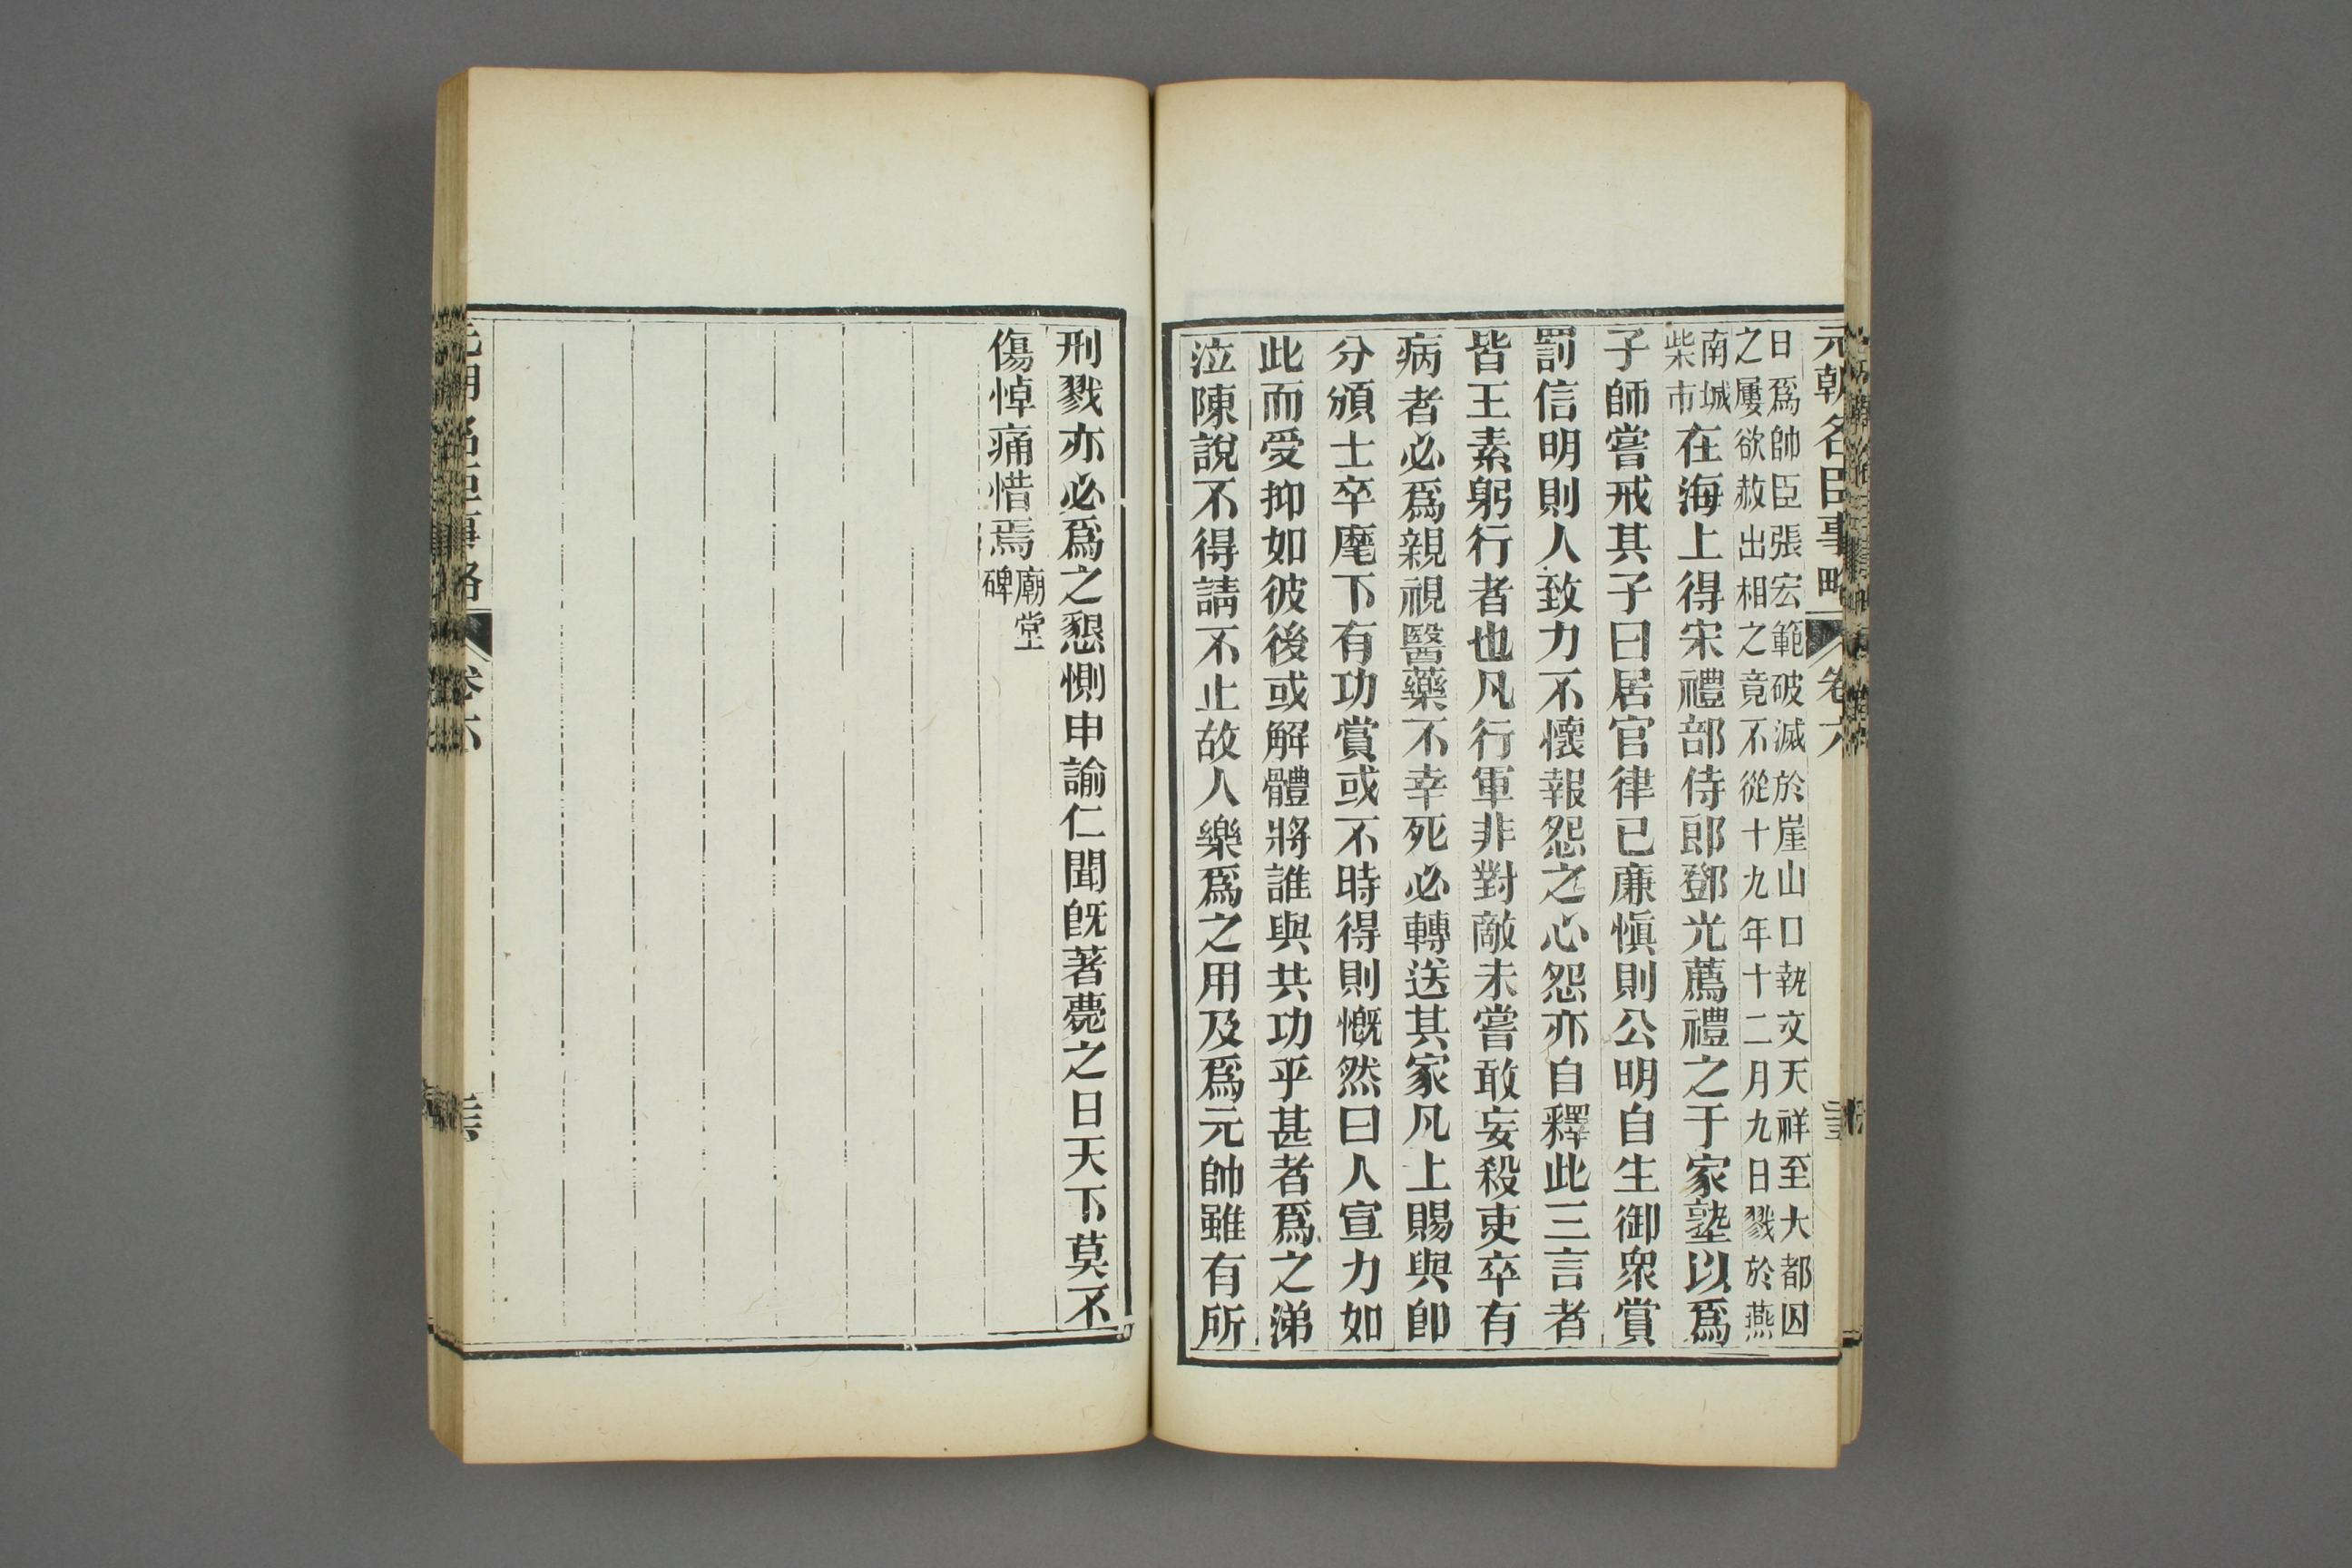 元朝名臣事略 卷六
日爲帥臣張宏範破滅於崖山口執文天祥至大都囚
之屢欲赦出相之竟不從十九年十二月九日戮於燕
南城
柴市
在海上得宋禮部侍郎鄧光薦禮之于家塾以爲
子師嘗戒其子曰居官律已廉愼則公明自生御衆賞
罰信明則人致力不懷報怨之心怨亦自釋此三言者
皆王素躬行者也凡行軍非對敵未嘗敢妄殺吏卒有
病者必爲親視醫藥不幸死必轉送其家凡上賜與卽
分頒士卒麾下有功賞或不時得則慨然曰人宣力如
此而受抑如彼後或解體將誰與共功乎甚者爲之涕
泣陳說不得請不止故人樂爲之用及爲元帥雖有所
刑戮亦必爲之懇惻申諭仁聞旣著薨之日天下莫不
傷悼痛惜焉
廟堂
碑
卷六